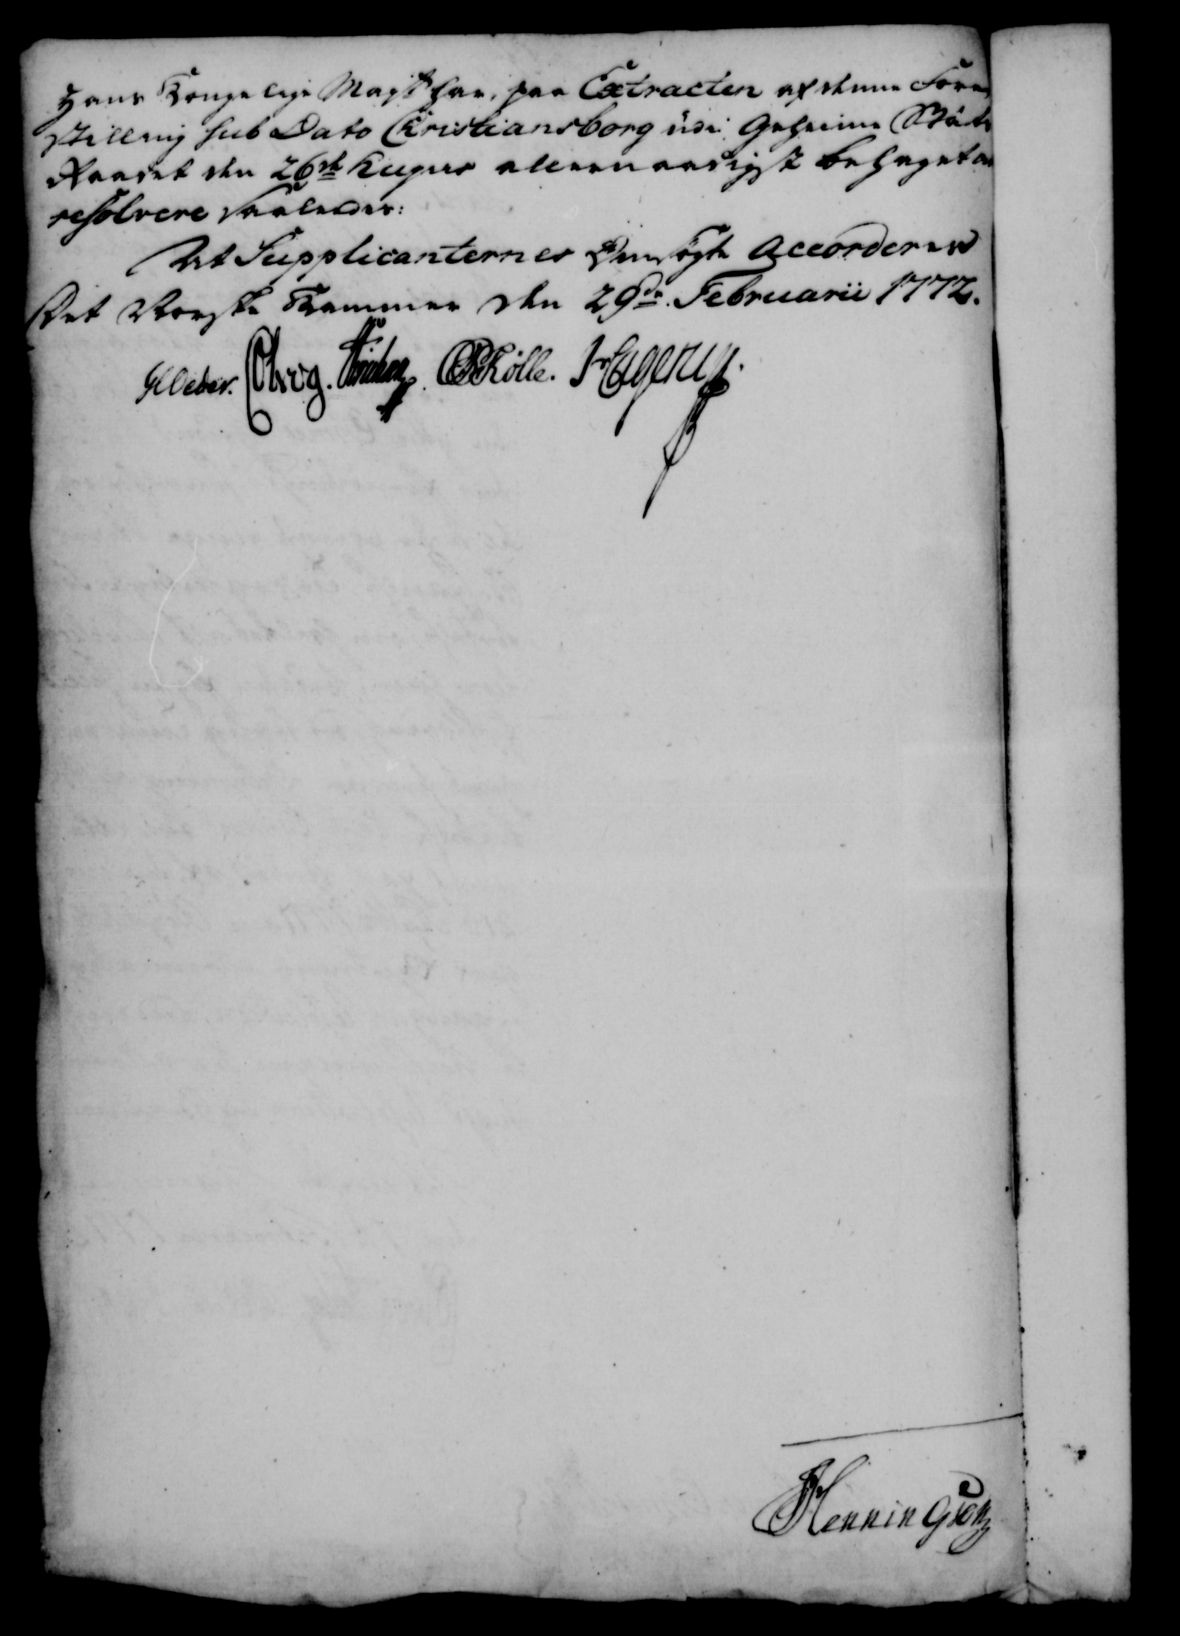 Hans Kongelige Majst har, paa Extracten af denne Fore-
stilling sub Dato Christiansborg udi Geheime Stats
Raadet den 26de hujus allernaadigst behaget at
resolvere saaledes:
Det Supplicanternes Ansøgte Accorderes
Det Norske Kammer den 29de Februarii 1772.
Weber. Holle.
Henning